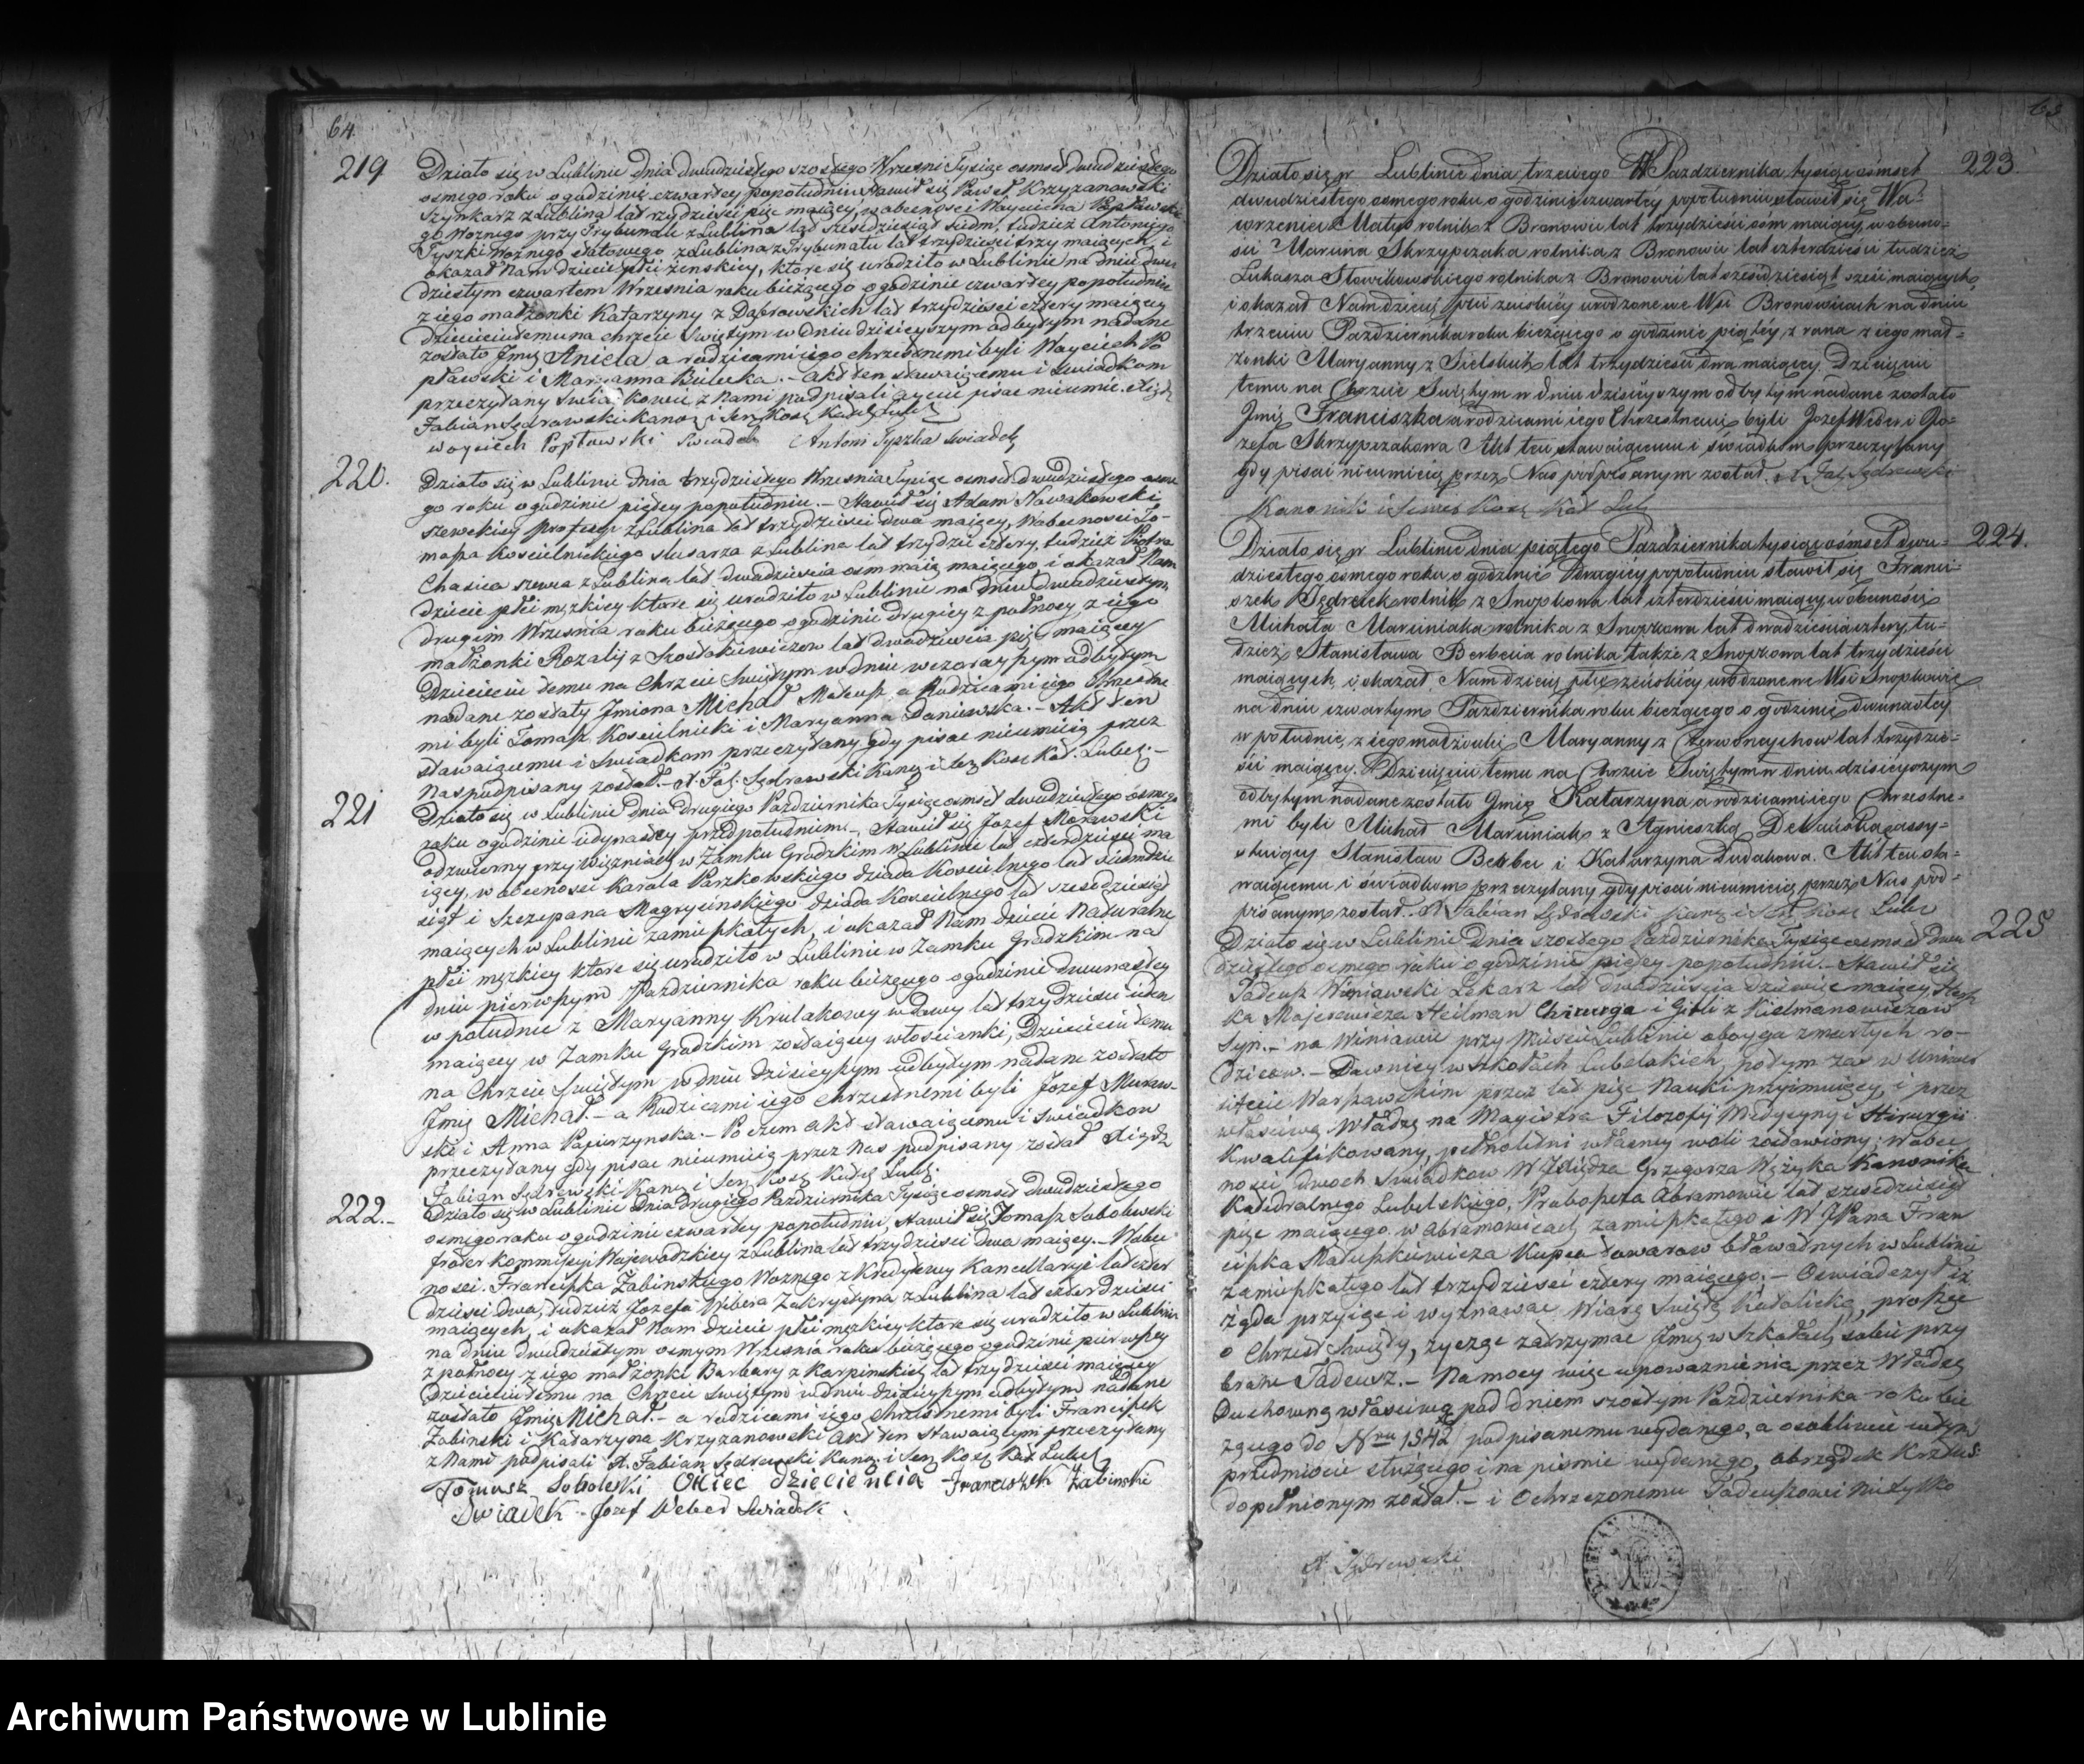 64.
219
Działo się w Lublinie dnia dwudziestego szostego Wrzesni Tysiąc osmset dwudziestego
osmego roku o godzinie czwartey popołudniu stawił się Paweł Krzyzanowski
szynkarz z Lublina lat trzydziesci pięc maiący, w obecnosci Woyciecha Popławskie
go Woznego przy Trybunale z Lublina lat szescdziesiąt siedm, tudziez Antoniego
Tyszki Woznego z Lublina z Trybunału lat trzydziesci trzy maiących, i
okazał Nam dziecie płci zenskiey, ktore się urodziło w Lublinie na dniu dwu
dziestym czwartem Wrzesnia roku bieżącego o godzinie czwartey popołudniu
z iego małżonki Katarzyny z Dąbrowskich lat trzydziesci cztery maiącey
Dziecieciu temu na chrzcie Swiętym w dniu dzisieyszym odbytym nadane
zostało Jmię Aniela a rodzicami iego chrzesnemi byli Woyciech Po
pławski i Maryanna Bielecka. - Akt ten stawaiącemu i swiadkom
przeczytany Swiadkowie z Nami podpisali oyciec pisac nieumie. Xiądz
Fabian Sędrowski Kano. i
woyciech Popławski Swiadek Antoni Tyszka swiadek
220.
Działo się w Lublinie dnia trzydziestego Wrzesnia Tysiąc osmset dwudziestego osme
go roku o godzinie piątey popołudniu. - Stawił się Adam Nowakowski
szewckiey profesyi z Lublina lat trzydziesci dwa maiący, W obecnosci To-
masza Koscielnickiego slusarza z Lublina lat trzydzieci cztery, tudziez Piotra
Chasica szewca z Lublina lat dwadziescia osm maiącego i okazał Nam
dziecie płci męzkiey ktore się urodziło w Lublinie na dniu dwudziestym
drugim Wrzesnia roku bieżącego o godzinie drugiey z pułnocy z iego
małżonki Rozalij z Szostakiewiczow lat dwadziescia pięc maiącey
Dziecieciu temu na Chrzcie Swiętym w dniu wczorayszym odbytym
nadane zostały Jmiona Michał Mateusz a Rodzicami iego Chrzestne
mi byli Tomasz Koscielnicki i Maryanna Daniewska. - Akt ten
stawaiącemu i Swiadkom przeczytany, gdy pisac nieumieią przez
Nas podpisany został. - X. Fab: Sędrowski Kan. i Kat. Lubel. -
221
Działo się w Lublinie dnia Drugiego Pazdziernika Tysiąc osmset dwudziestego osmego
roku o godzinie iedynastey przedpołudniem -, Stawił się Jozef Morawski
odzwierny przy więzniach w Zamku Grodzkim w Lublinie lat czterdziesci ma
iący, w obecnosci Karola Parzkowskiego dziada Koscielnego lat siedmdzie
siąt i Szczepana Magrycinskiego dziada Koscielnego lat szescdziesiąt
maiących w Lublinie zamieszkałych, i okazał Nam dziecie Naturalne
płci męzkiey ktore się urodziło w Lublinie w Zamku Grodzkim na
dniu pierwszym Pazdziernika roku bieżącego o godzinie dwunastey
w południe z Maryanny Krulakowy wdowy lat trzydziesci ieden
maiącey w Zamku Grodzkim zostaiącey włoscianki, Dziecieciu temu
na Chrzcie Swiętym w dniu dzisieyszym odbytym nadane zostało
Jmię Michał. - a Rodzicami iego chrzestnemi byli Jozef Muraw-
ski i Anna Papierzynska. - Po czem Akt stawaiącemu i swiadkom
przeczytany gdy pisac nieumieią przez Nas podpisany został Xiądz
Fabian Sędrowski Kan. i
222.
Działo się w Lublinie Dnia Drugiego Pazdziernika Tysiąc osmset Dwudziestego
osmego roku o godzinie czwartey popołudniu, stawił się Tomasz Sobolewski
froter kommisyi Wojewodzkiey z Lublina lat trzydziesci dwa maiący. - W obec
nosci. Franciszka Zabinskiego Woznego z Kredytowey Kancellaryi lat czter
dziesci dwa, tudziez Jozefa Webera Zakrystyna z Lublina lat czterdziesci
maiących, i okazał Nam dziecie płci męzkiey ktore się urodziło w Lublinie
na dniu dwudziestym osmym Wrzesnia roku bieżącego o godzinie pierwszey
z północy z iego małżonki Barbary z Karpinskich lat trzydziesci maiącey
Dziecieciu temu na Chrzcie swiętym w dniu dzisieyszym odbytym nadane
zostało Jmię Michał. - a rodzicami iego Chrzestnemi byli Franciszek
Zabinski i Katarzyna Krzyzanowski Akt ten stawaiącym przeczytany
z Nami podpisali X. Fabian Sędrowski Kano. i Kat. Lubel.
Tomasz Sobolewski Ociec dziecieńcia Franciszek Żabinski
Swiadek - Jozef Weber Swiadek.
65
223.
Działo się w Lublinie dnia trzeciego Pazdziernika tysiąc osmset
dwudziestego osmego roku o godzinie czwartey popołudniu stawił się Wa-
wrzeniec Matys rolnik z Bronowic lat trzydzieści ośm maiący w obecno-
ści Marcina Skrzypczaka rolnika z Bronowic lat czterdzieści tudzież
Lukasza Słowikowskiego rolnika z Bronowic lat sześćdziesiąt sześć maiących,
i okazał Nam dziecię płci zenskiey urodzone we Wsi Bronowicach na dniu
trzecim Pazdziernika roku bieżącego o godzinie piątéy z rana z iego mał=
zonki Maryanny z Sielskich lat trzydzieści dwa maiącey. Dziecięciu
temu na Chrzcie Swiętym w dniu dzisieyszym odbytym nadane zostało
Jmię Franciszka a rodzicami iego Chrzestnemi byli Jozef Weber i Jo-
zefa Skrzypczakowa Akt ten stawaiącemu i świadkom przeczytany
gdy pisać nieumieią przez Nas podpisanym został. X. Fab. Sędrowski
Kanonik i Kat Lub
224.
Działo się w Lublinie dnia piątego Pazdziernika tysiąc ośmset dwu-
dziestego osmego roku o godzinie Drugiéy popołudniu stawił się Franci-
szek Jędrelek rolnik z Snopkowa lat czterdzieści maiący w obecności
Michała Marciniaka rolnika z Snopkowa lat dwadzieścia cztery, tu-
dziez Stanisława Berbecia rolnika także z Snopkowa lat trzydzieści
maiących, i okazał Nam dziecię płci zeńskiéy urodzone we Wsi Snopkowie
na dniu czwartym Pazdziernika roku bieżącego o godzinie dwunastey
w południe, z iego małżonki Maryanny z lat trzydzie-
ści maiącey. Dziecięciu temu na Chrzcie Swiętym w dniu dzisieyszym
odbytym nadane zostało Jmię Katarzyna, a rodzicami iego Chrzestne-
mi byli Michał Marciniak z Agnieszką assy-
stuiący Stanisław Berbec i Katarzyna Dudakowa. Akt ten sta-
waiącemu i świadkom przeczytany gdy pisać nieumieią przez Nas pod-
pisanym został. X Fabian Sędrowski Kan. i Lube
225
Działo się w Lublinie Dnia szostego Pazdziernika Tysiąc osmset dwu
dziestego osmego roku o godzinie piątey popołudniu. - Stawił się
Tadeusz Winiawski Lekarz lat dwadziescia dziewięc maiący,
Majerowicza Heilman Chirurga i Gitli z Kielmanowiczow
Syn. - na Winiawie przy Miescie Lublinie oboyga zmarłych ro-
dzicow. - Dawniey w szkołach Lubelskich, potym zas w Uniwer
sitecie Warszawskim przez lat pięc Nauki przyimuiący, i przez
własciwą Władzę na Magistra Filozofij Medycyny i Hirurgii
Kwalifikowany, pełnoletni własney woli zostawiony; W obec
nosci dwoch Swiadkow W. Xiędza Grzegorza Wężyka Kanonika
Katedralnego Lubelskiego, Proboszcza Abramowic lat szescdziesiąt
pięc maiącego w Abramowicach zamieszkałego i W. JPana Fran
ciszka Matuszkiewicza Kupca towarow bławatnych w Lublinie
zamieszkałego lat trzydziesci cztery maiącego. - Oswiadczył iż
żąda przyiąc i wyznawac Wiarę Swiętą Katolicką, proszę
o Chrzest Swięty, życzę zatrzymac Jmię w Szkołach sobie przy
brane Tadeusz. - Na mocy więc upoważnienia przez Władzę
Duchowną własciwą pod dniem szostym Pazdziernika roku bie
żącego do Nru 1342 podpisanemu wydanego, a osobliwie w tym
przedmiocie służącego i na pismie wydanego, obrządek Krztus
dopełnionym został. - i Ochrzczonemu Tadeuszowi nie tylko
X. Sędrowski
Archiwum Państwowe w Lublinie